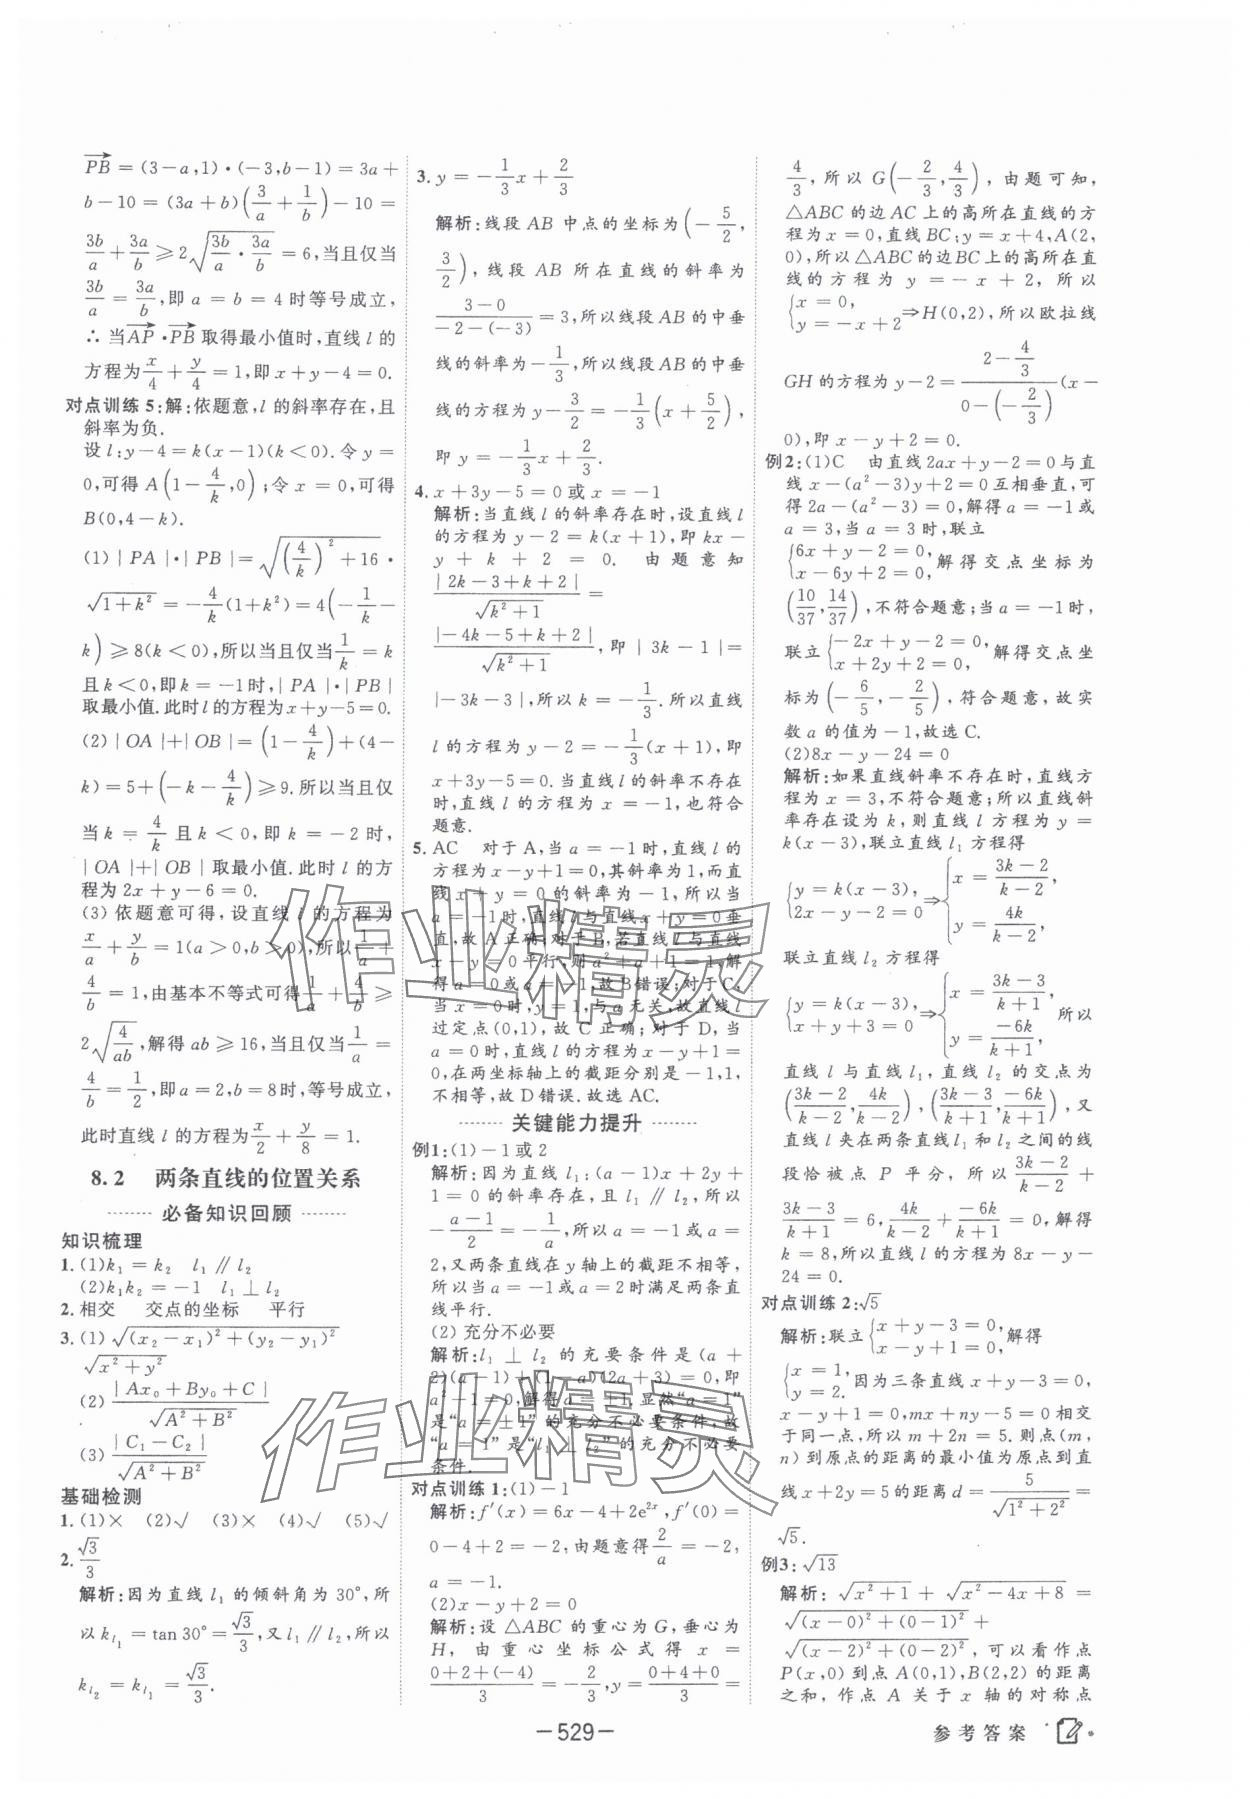 PB=(3-a,1)·(-3,b-1)=3a+
b-10=(3a+b)(3/a+1/b)-10=
3b/a+3a/b≥2√(3b/a·3a/b)=6,当且仅当
3b/a=3a/b,即a=b=4时等号成立,
∴当AP·PB取得最小值时,直线l的
方程为x/4+y/4=1,即x+y-4=0.
对点训练5:解:依题意,l的斜率存在,且
斜率为负.
设l:y-4=k(x-1)(k<0).令y=
0,可得A(1-4/k,0);令x=0,可得
B(0,4-k).
(1)|PA|·|PB|=√((4/k)²+16)·
√(1+k²)=-4/k(1+k²)=4(-1/k-
k)≥8(k<0),所以当且仅当1/k=k
且k<0,即k=-1时,|PA|·|PB|
取最小值.此时l的方程为x+y-5=0.
(2)|OA|+|OB|=(1-4/k)+(4-
k)=5+(-k-4/k)≥9.所以当且仅
当k=4/k且k<0,即k=-2时,
|OA|+|OB|取最小值.此时l的方
程为2x+y-6=0.
(3)依题意可得,设直线l的方程为
x/a+y/b=1(a>0,b>0),所以1/a+
4/b=1,由基本不等式可得1/a+4/b≥
2√(4/ab),解得ab≥16,当且仅当1/a=
4/b=1/2,即a=2,b=8时,等号成立,
此时直线l的方程为x/2+y/8=1.
8.2 两条直线的位置关系
必备知识回顾
知识梳理
1.(1)k₁=k₂ l₁∥l₂
(2)k₁k₂=-1 l₁⊥l₂
2.相交 交点的坐标 平行
3.(1)√((x₂-x₁)²+(y₂-y₁)²)
√(x²+y²)
(2)|Ax₀+By₀+C|/√(A²+B²)
(3)|C₁-C₂|/√(A²+B²)
基础检测
1.(1)× (2)√ (3)× (4)√ (5)√
2.√3/3
解析:因为直线l₁的倾斜角为30°,所
以k_l₁=tan30°=√3/3,又l₁∥l₂,所以
k_l₂=k_l₁=√3/3.
3.y=-1/3x+2/3
解析:线段AB中点的坐标为(-5/2,
3/2),线段AB所在直线的斜率为
(3-0)/(-2-(-3))=3,所以线段AB的中垂
线的斜率为-1/3,所以线段AB的中垂
线的方程为y-3/2=-1/3(x+5/2),
即y=-1/3x+2/3.
4.x+3y-5=0或x=-1
解析:当直线l的斜率存在时,设直线l
的方程为y-2=k(x+1),即kx-
y+k+2=0.由题意知
|2k-3+k+2|/√(k²+1)=
|-4k-5+k+2|/√(k²+1),即|3k-1|=
|-3k-3|,所以k=-1/3.所以直线
l的方程为y-2=-1/3(x+1),即
x+3y-5=0.当直线l的斜率不存在
时,直线l的方程为x=-1,也符合
题意.
5.AC 对于A,当a=-1时,直线l的
方程为x-y+1=0,其斜率为1,而直
线x+y=0的斜率为-1,所以当
a=-1时,直线l与直线x+y=0垂
直,故A正确;对于B,若直线l与直线
x-y=0平行,则a²+a+1=1,解
得a=0或a=-1,故B错误;对于C,
当x=0时,y=1,与a无关,故直线l
过定点(0,1),故C正确;对于D,当
a=0时,直线l的方程为x-y+1=
0,在两坐标轴上的截距分别是-1,1,
不相等,故D错误.故选AC.
关键能力提升
例1:(1)-1或2
解析:因为直线l₁:(a-1)x+2y+
1=0的斜率存在,且l₁∥l₂,所以
-(a-1)/2=-1/a,所以a=-1或a=
2,又两条直线在y轴上的截距不相等,
所以当a=-1或a=2时满足两条直
线平行.
(2)充分不必要
解析:l₁⊥l₂的充要条件是(a+
2)(a-1)+(1-a)(2a+3)=0,即
a²-1=0,解得a=±1.显然“a=1”
是“a=±1”的充分不必要条件,故
“a=1”是“l₁⊥l₂”的充分不必要
条件.
对点训练1:(1)-1
解析:f′(x)=6x-4+2e²ˣ,f′(0)=
0-4+2=-2,由题意得2/a=-2,
a=-1.
(2)x-y+2=0
解析:设△ABC的重心为G,垂心为
H,由重心坐标公式得x=
(0+2+(-4))/3=-2/3,y=(0+4+0)/3=
4/3,所以G(-2/3,4/3),由题可知,
△ABC的边AC上的高所在直线的方
程为x=0,直线BC:y=x+4,A(2,
0),所以△ABC的边BC上的高所在直
线的方程为y=-x+2,所以
{x=0, y=-x+2⇒H(0,2),所以欧拉线
GH的方程为y-2=(2-4/3)/(0-(-2/3))(x-
0),即x-y+2=0.
例2:(1)C 由直线2ax+y-2=0与直
线x-(a²-3)y+2=0互相垂直,可
得2a-(a²-3)=0,解得a=-1或
a=3,当a=3时,联立
{6x+y-2=0, x-6y+2=0,解得交点坐标为
(10/37,14/37),不符合题意;当a=-1时,
联立{-2x+y-2=0, x+2y+2=0,解得交点坐
标为(-6/5,-2/5),符合题意,故实
数a的值为-1,故选C.
(2)8x-y-24=0
解析:如果直线斜率不存在时,直线方
程为x=3,不符合题意;所以直线斜
率存在设为k,则直线l方程为y=
k(x-3),联立直线l₁方程得
{y=k(x-3), 2x-y-2=0⇒{x=(3k-2)/(k-2), y=4k/(k-2),
联立直线l₂方程得
{y=k(x-3), x+y+3=0⇒{x=(3k-3)/(k+1), y=-6k/(k+1),所以
直线l与直线l₁,直线l₂的交点为
((3k-2)/(k-2),4k/(k-2)),((3k-3)/(k+1),-6k/(k+1)),又
直线l夹在两条直线l₁和l₂之间的线
段恰被点P平分,所以(3k-2)/(k-2)+
(3k-3)/(k+1)=6,4k/(k-2)+-6k/(k+1)=0,解得
k=8,所以直线l的方程为8x-y-
24=0.
对点训练2:√5
解析:联立{x+y-3=0, x-y+1=0,解得
{x=1, y=2.因为三条直线x+y-3=0,
x-y+1=0,mx+ny-5=0相交
于同一点,所以m+2n=5.则点(m,
n)到原点的距离的最小值为原点到直
线x+2y=5的距离d=5/√(1²+2²)=
√5.
例3:√13
解析:√(x²+1)+√(x²-4x+8)=
√((x-0)²+(0-1)²)+
√((x-2)²+(0-2)²),可以看作点
P(x,0)到点A(0,1),B(2,2)的距离
之和,作点A关于x轴的对称点
-529-
参考答案
作业精灵
作业精灵